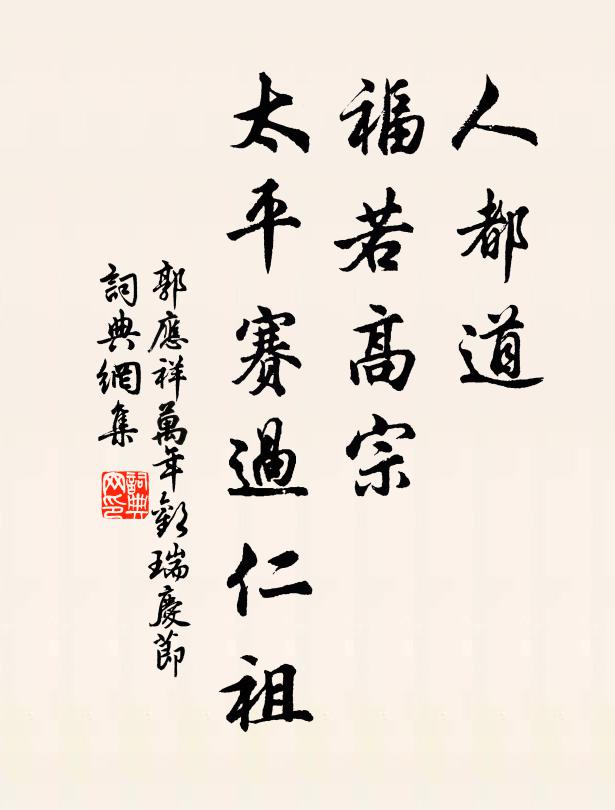 人都道
福若高宗
太平賽過仁祖
郭應祥萬年歡瑞慶節
詞典網集
詞典網印